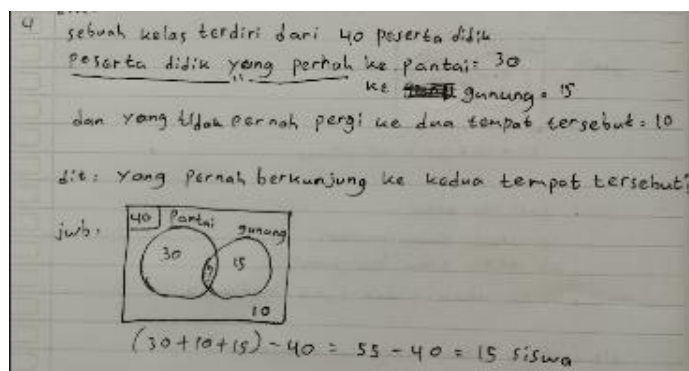 4
sebuah kelas terdiri dari 40 peserta didik
Peserta didik yang pernah ke pantai = 30
ke gunung = 15
dan yang tidak pernah pergi ke dua tempat tersebut = 10
dit: yang pernah berkunjung ke kedua tempat tersebut?
jwb:
40 Pantai gunung
30 15
10
(30+10+15) - 40 = 55 - 40 = 15 siswa